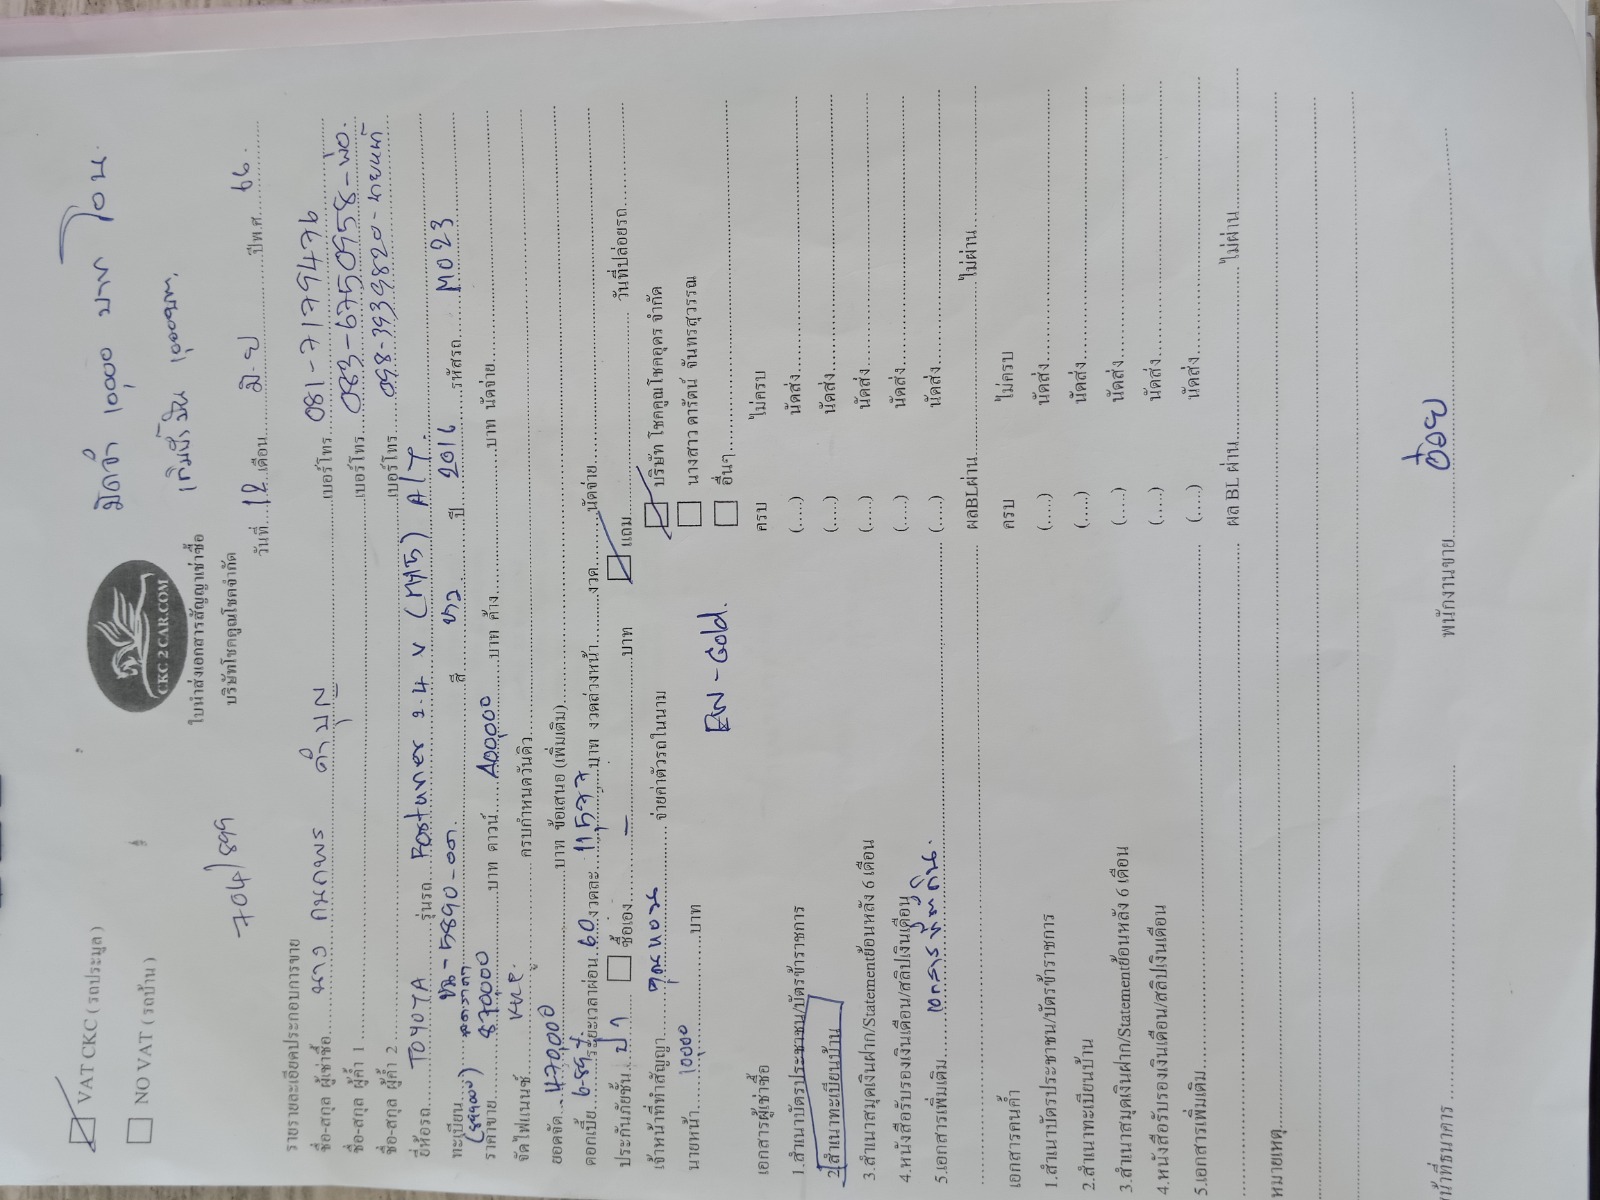 ☑ VAT CKC ( รถประมูล)
☐ NO VAT ( รถบ้าน )
มัดจำ 10,000 บาท โอน.
เติมน้ำมัน 1,000บาท.
704/899
CKC 2 CAR.COM
ใบนำส่งเอกสารสัญญาเช่าซื้อ
บริษัทโชคคูณโชคจำกัด
วันที่....12...เดือน....มิ.ย....ปีพ.ศ. 66.
รายรายละเอียดประกอบการขาย
ชื่อ-สกุล ผู้เช่าซื้อ.....นาง.....เบอร์โทร....081-7179476
ชื่อ-สกุล ผู้ค้ำ 1.....เบอร์โทร....083-6750958-พ่อ.
ชื่อ-สกุล ผู้ค้ำ 2.....เบอร์โทร....098-3939820-นายหน้า
ยี่ห้อรถ....TOYOTA....รุ่นรถ....Fortuner 2.4 V A/T.
ทะเบียน....5890....สี....ขาว....ปี....2016....รหัสรถ....M023
(899000)
ราคาขาย....870,000....บาท ดาวน์....400,000....บาท ค้าง....บาท นัดจ่าย
จัดไฟแนนซ์....KKP.....ครบกำหนดวันดิว
ยอดจัด....470,000....บาท ข้อเสนอ (เพิ่มเติม)
ดอกเบี้ย....ระยะเวลาผ่อน..60..งวดละ....11,577...บาท งวดล่วงหน้า....งวด....นัดจ่าย
ประกันภัยชั้น....ป1....☐ ซื้อเอง....-....บาท ☑ แถม....วันที่ปล่อยรถ
เจ้าหน้าที่ทำสัญญา....จ่ายค่าตัวรถในนาม ☑ บริษัท โชคคูณโชคอุดร จำกัด
☐ นางสาว ดารัตน์ จันทรสุวรรณ
นายหน้า....10,000....บาท ☐ อื่นๆ
Gold.
เอกสารผู้เช่าซื้อ ครบ ไม่ครบ
1.สำเนาบัตรประชาชน/บัตรข้าราชการ (.....) นัดส่ง
2.สำเนาทะเบียนบ้าน (.....) นัดส่ง
3.สำเนาสมุดเงินฝาก/Statementย้อนหลัง 6 เดือน (.....) นัดส่ง
4.หนังสือรับรองเงินเดือน/สลิปเงินเดือน (.....) นัดส่ง
5.เอกสารเพิ่มเติม....เอกสารที่ดิน. (.....) นัดส่ง
ผลBLผ่าน....ไม่ผ่าน
เอกสารคนค้ำ ครบ ไม่ครบ
1.สำเนาบัตรประชาชน/บัตรข้าราชการ (.....) นัดส่ง
2.สำเนาทะเบียนบ้าน (.....) นัดส่ง
3.สำเนาสมุดเงินฝาก/Statementย้อนหลัง 6 เดือน (.....) นัดส่ง
4.หนังสือรับรองเงินเดือน/สลิปเงินเดือน (.....) นัดส่ง
5.เอกสารเพิ่มเติม (.....) นัดส่ง
ผล BL ผ่าน....ไม่ผ่าน
หมายเหตุ
น้าที่ธนาคาร....พนักงานขาย....อ้อย